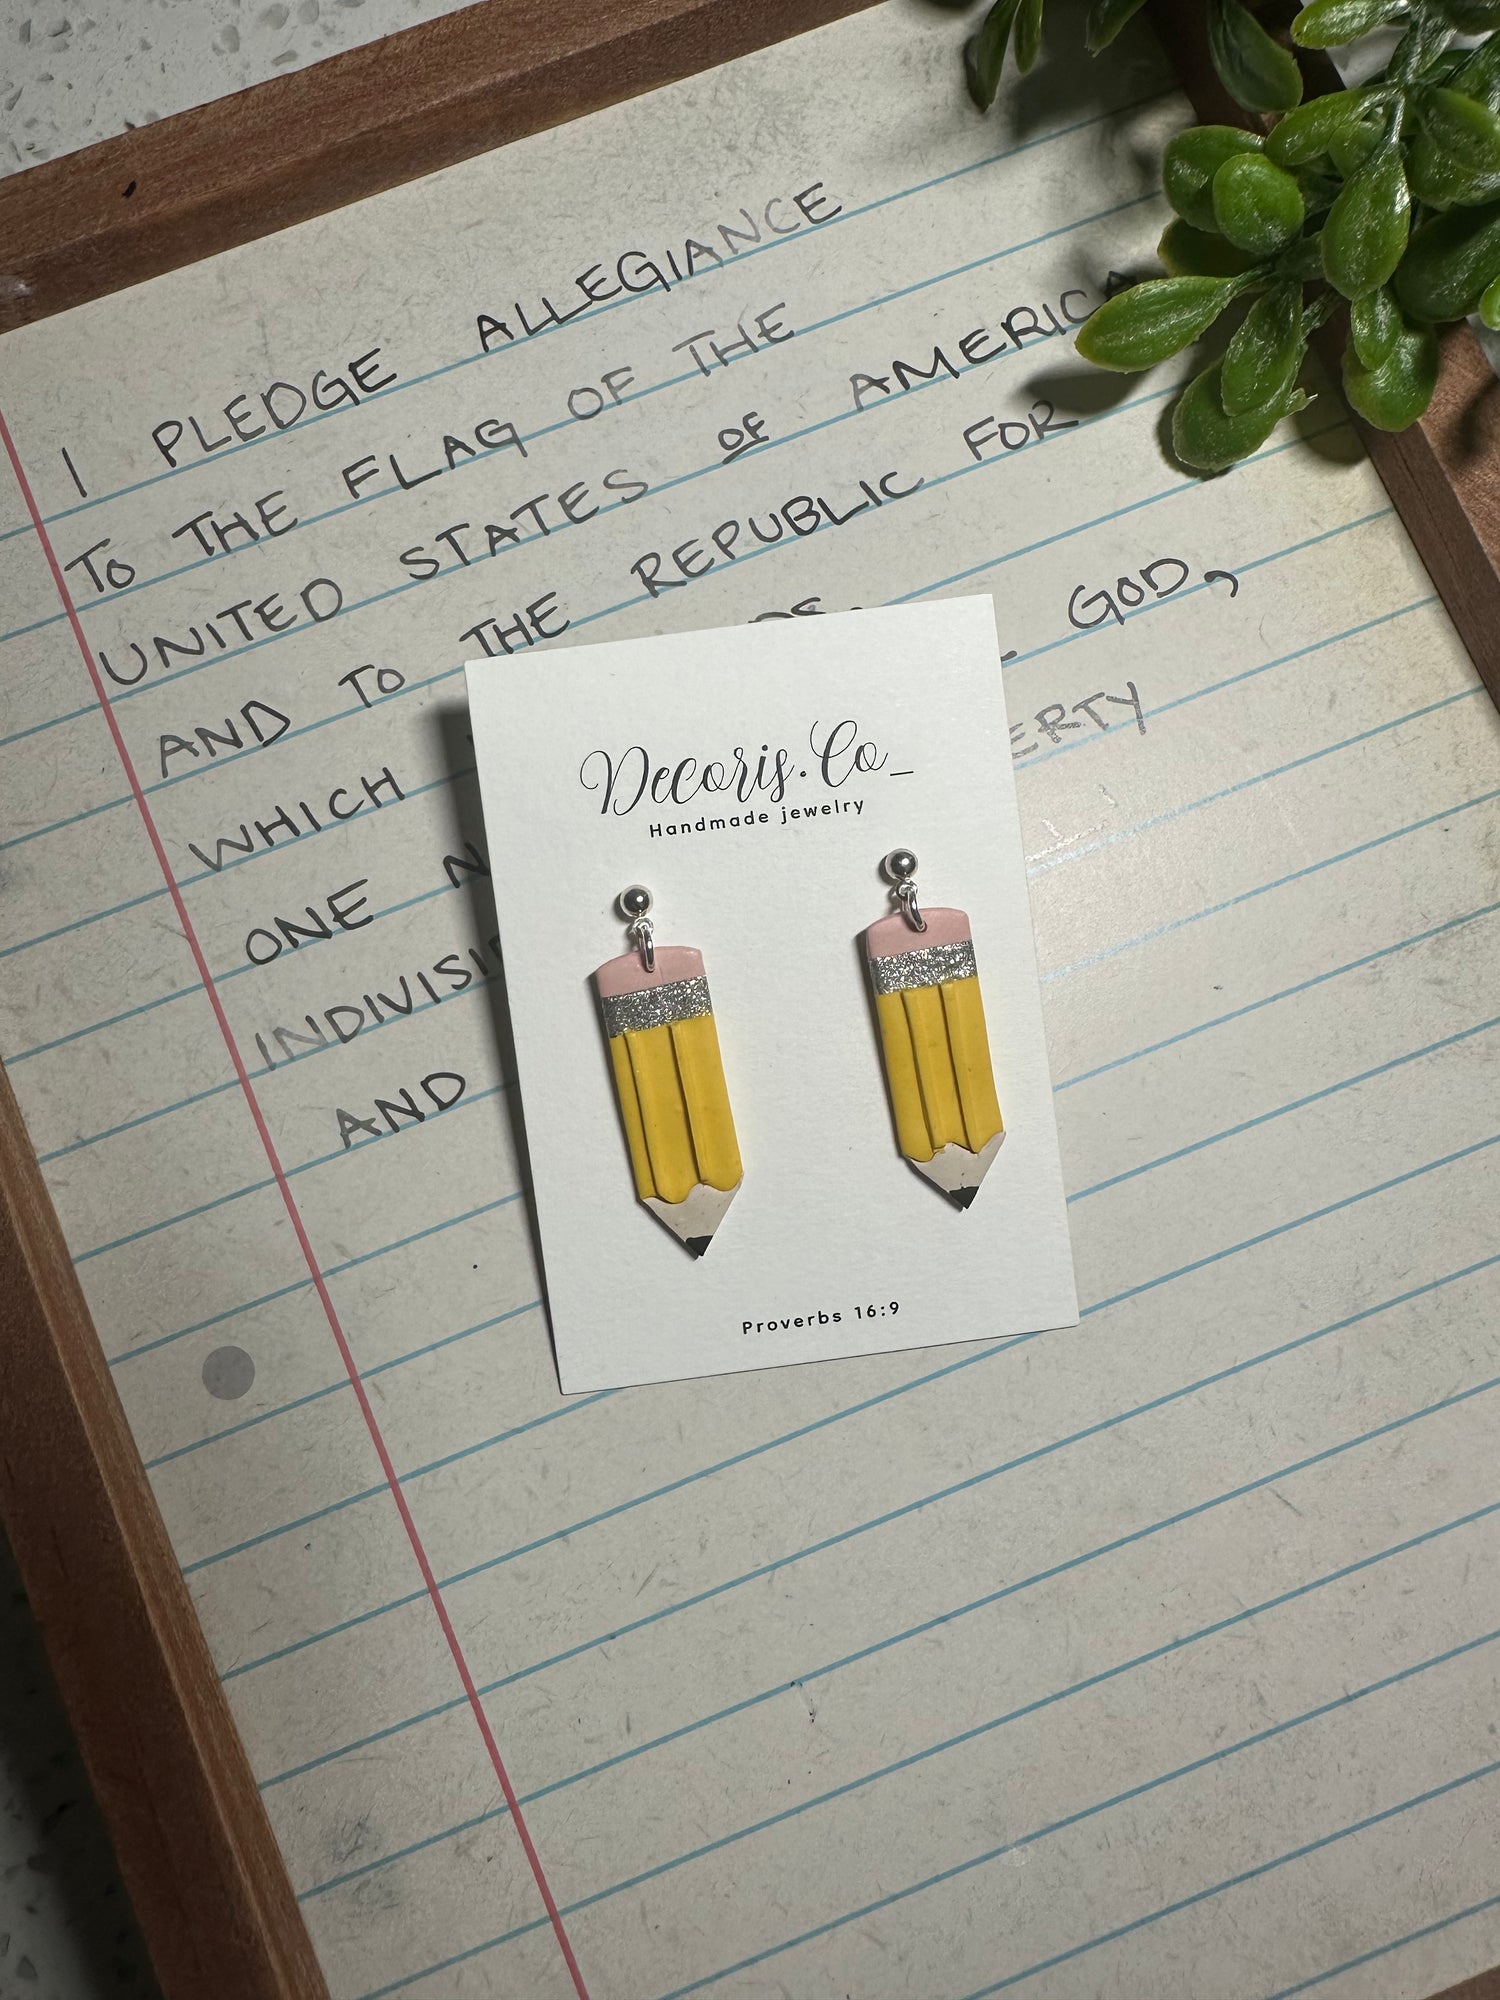 I PLEDGE ALLEGIANCE
TO THE FLAG OF THE
UNITED STATES OF AMERICA
AND TO THE REPUBLIC FOR
WHICH GOD,
ONE
AND
Decoris.Co_
Handmade jewelry
Proverbs 16:9